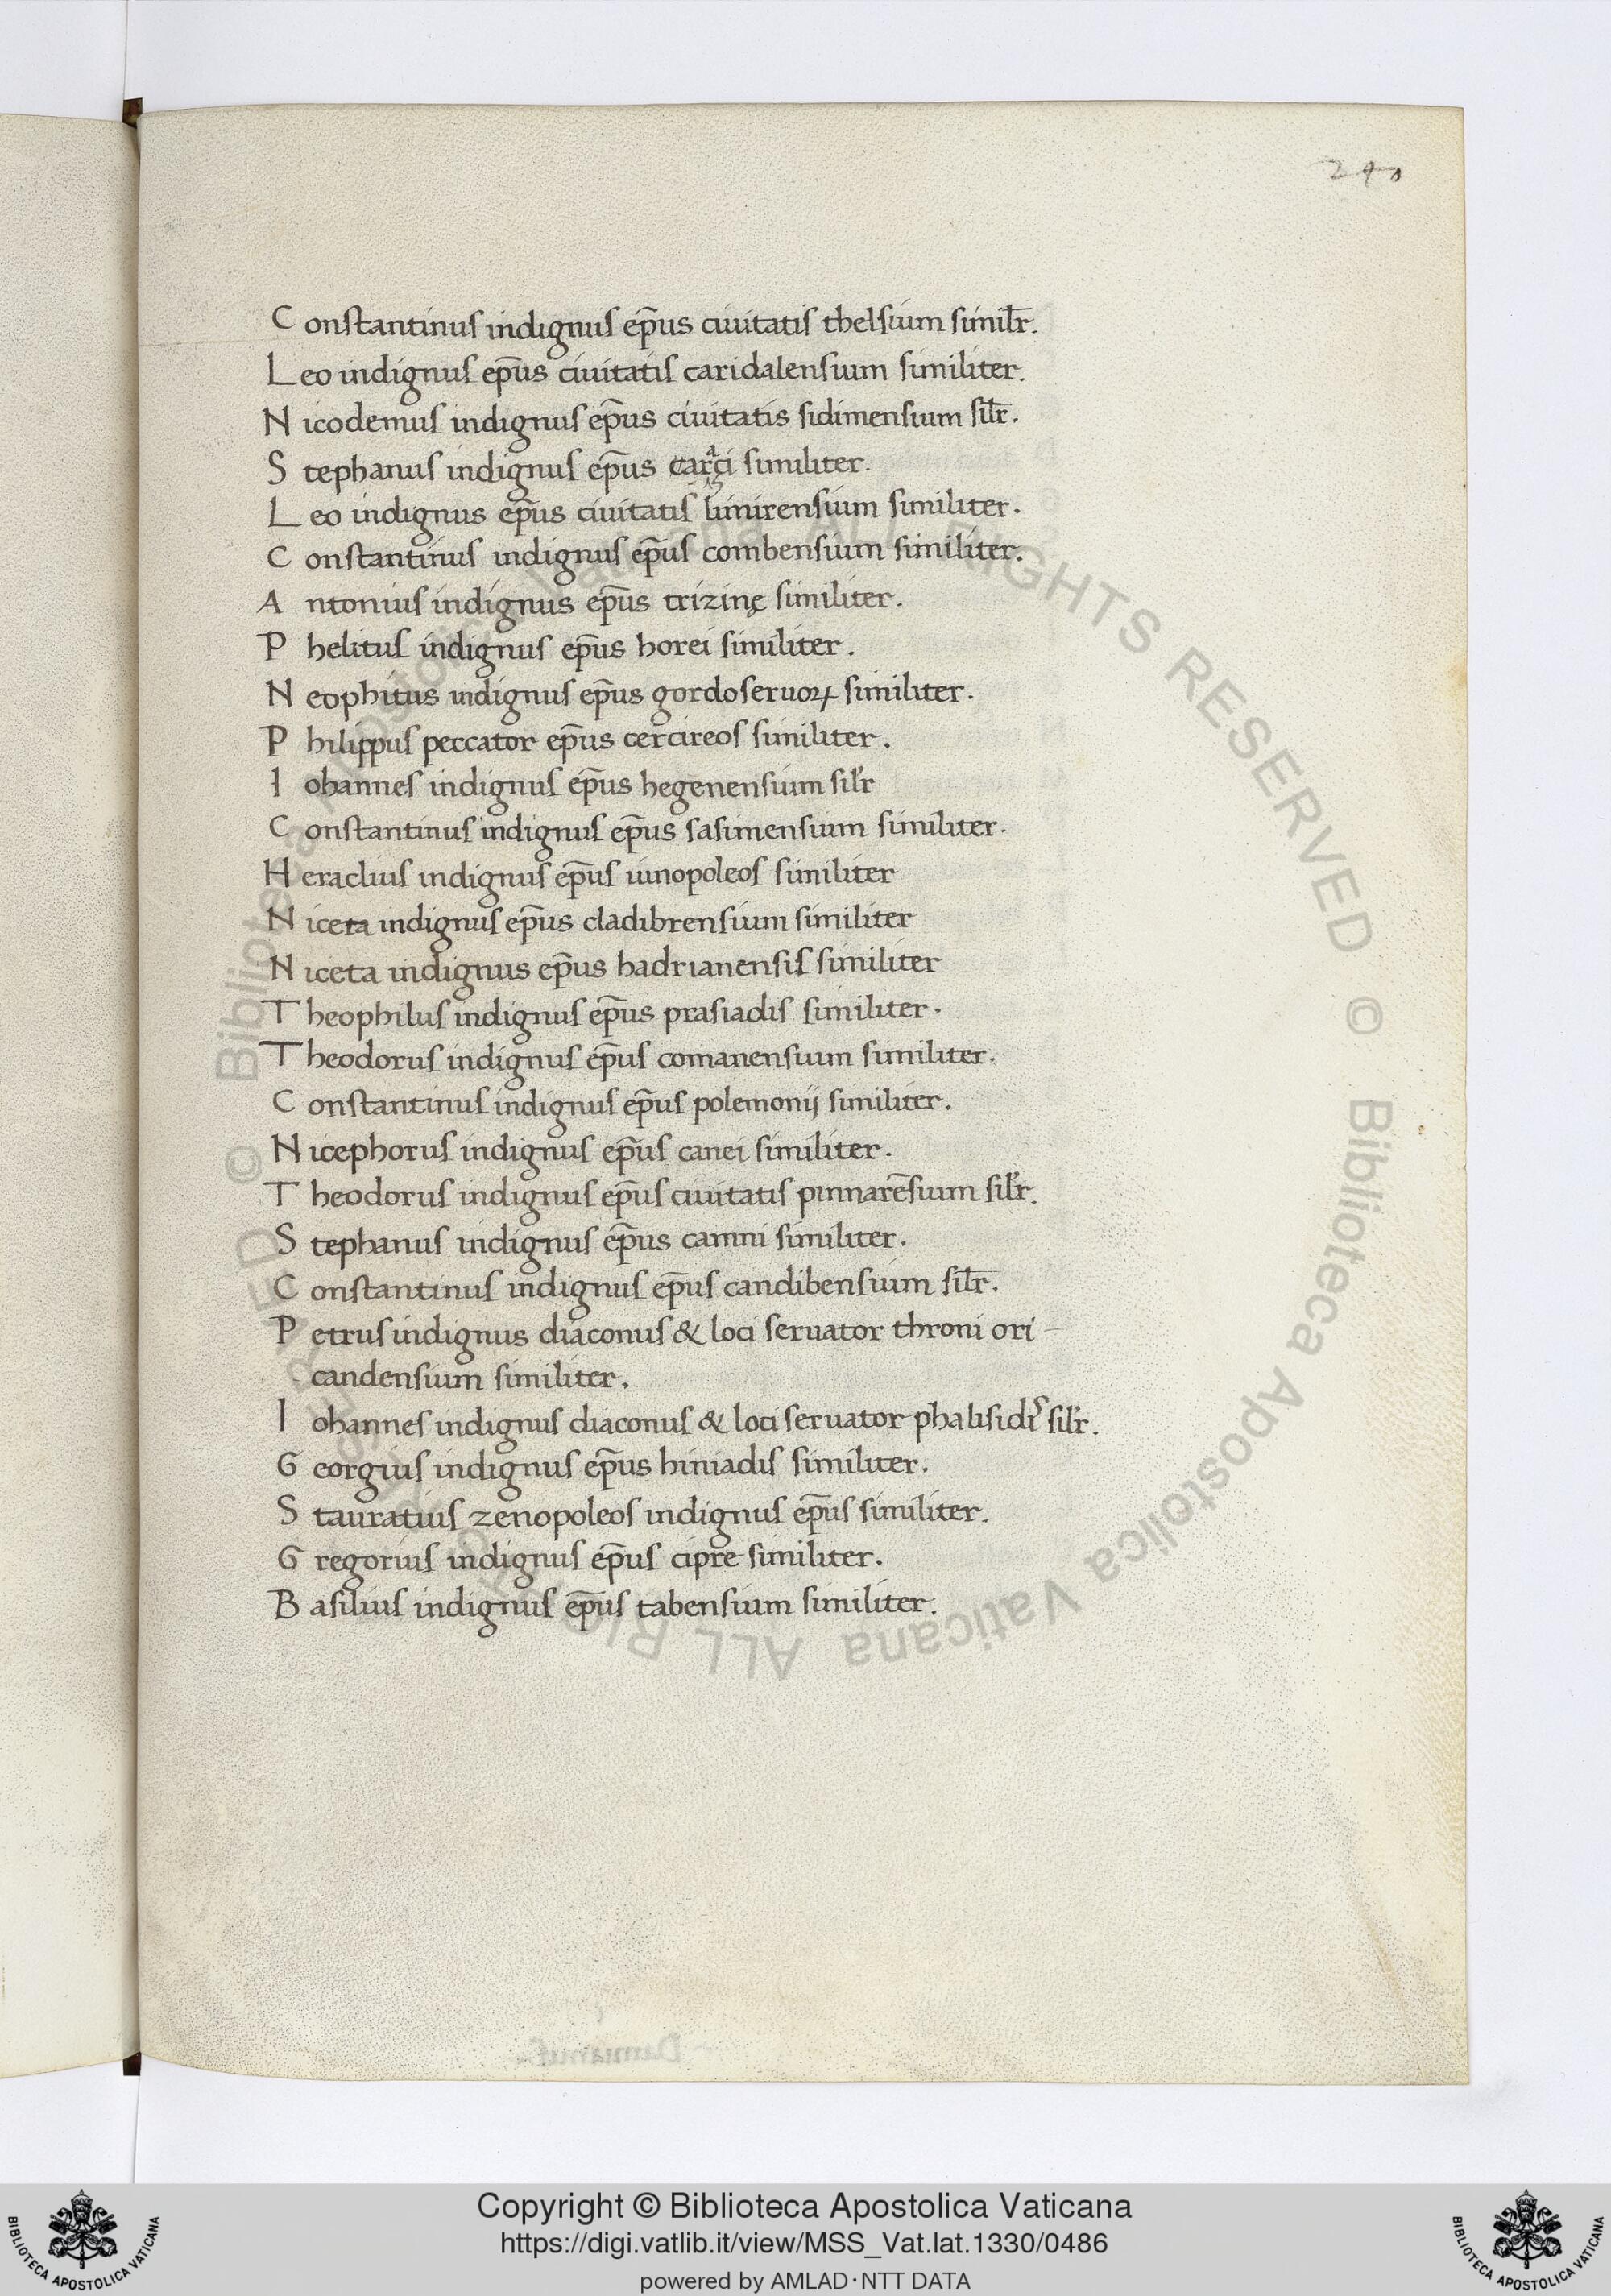 240
Constantinus indignus ep̄us ciuitatis thelsium simil̄r.
Leo indignus ep̄us ciuitatis caridalensium similiter.
Nicodemus indignus ep̄us ciuitatis sidimensium sil̄r.
Stephanus indignus ep̄us similiter.
Leo indignus ep̄us ciuitatis limirensium similiter.
Constantinus indignus ep̄us combensium similiter.
Antonius indignus ep̄us trizinę similiter.
Phelitus indignus ep̄us horei similiter.
Neophitus indignus ep̄us gordoseruoꝝ similiter.
Philippus peccator ep̄us cercireos similiter.
Iohannes indignus ep̄us hegenensium sil̓r
Constantinus indignus ep̄us sasimensium similiter.
Heraclius indignus ep̄us iunopoleos similiter
Niceta indignus ep̄us cladibrensium similiter
Niceta indignus ep̄us hadrianensis similiter
Theophilus indignus ep̄us prasiadis similiter.
Theodorus indignus ep̄us comanensium similiter.
Constantinus indignus ep̄us polemonij similiter.
Nicephorus indignus ep̄us canei similiter.
Theodorus indignus ep̄us ciuitatis pinnarēsium sil̓r.
Stephanus indignus ep̄us camni similiter.
Constantinus indignus ep̄us candibensium sil̄r.
Petrus indignus diaconus & loci seruator throni ori-
candensium similiter.
Iohannes indignus diaconus & loci seruator phalisidis sil̓r.
Georgius indignus ep̄us hiniadis similiter.
Stauratius zenopoleos indignus ep̄us similiter.
Gregorius indignus ep̄us cipre similiter.
Basilius indignus ep̄us tabensium similiter.
© Biblioteca Apostolica Vaticana ALL RIGHTS RESERVED © Biblioteca Apostolica Vaticana ALL RIGHTS RESERVED
Copyright © Biblioteca Apostolica Vaticana
https://digi.vatlib.it/view/MSS_Vat.lat.1330/0486
powered by AMLAD·NTT DATA
BIBLIOTECA APOSTOLICA VATICANA
BIBLIOTECA APOSTOLICA VATICANA